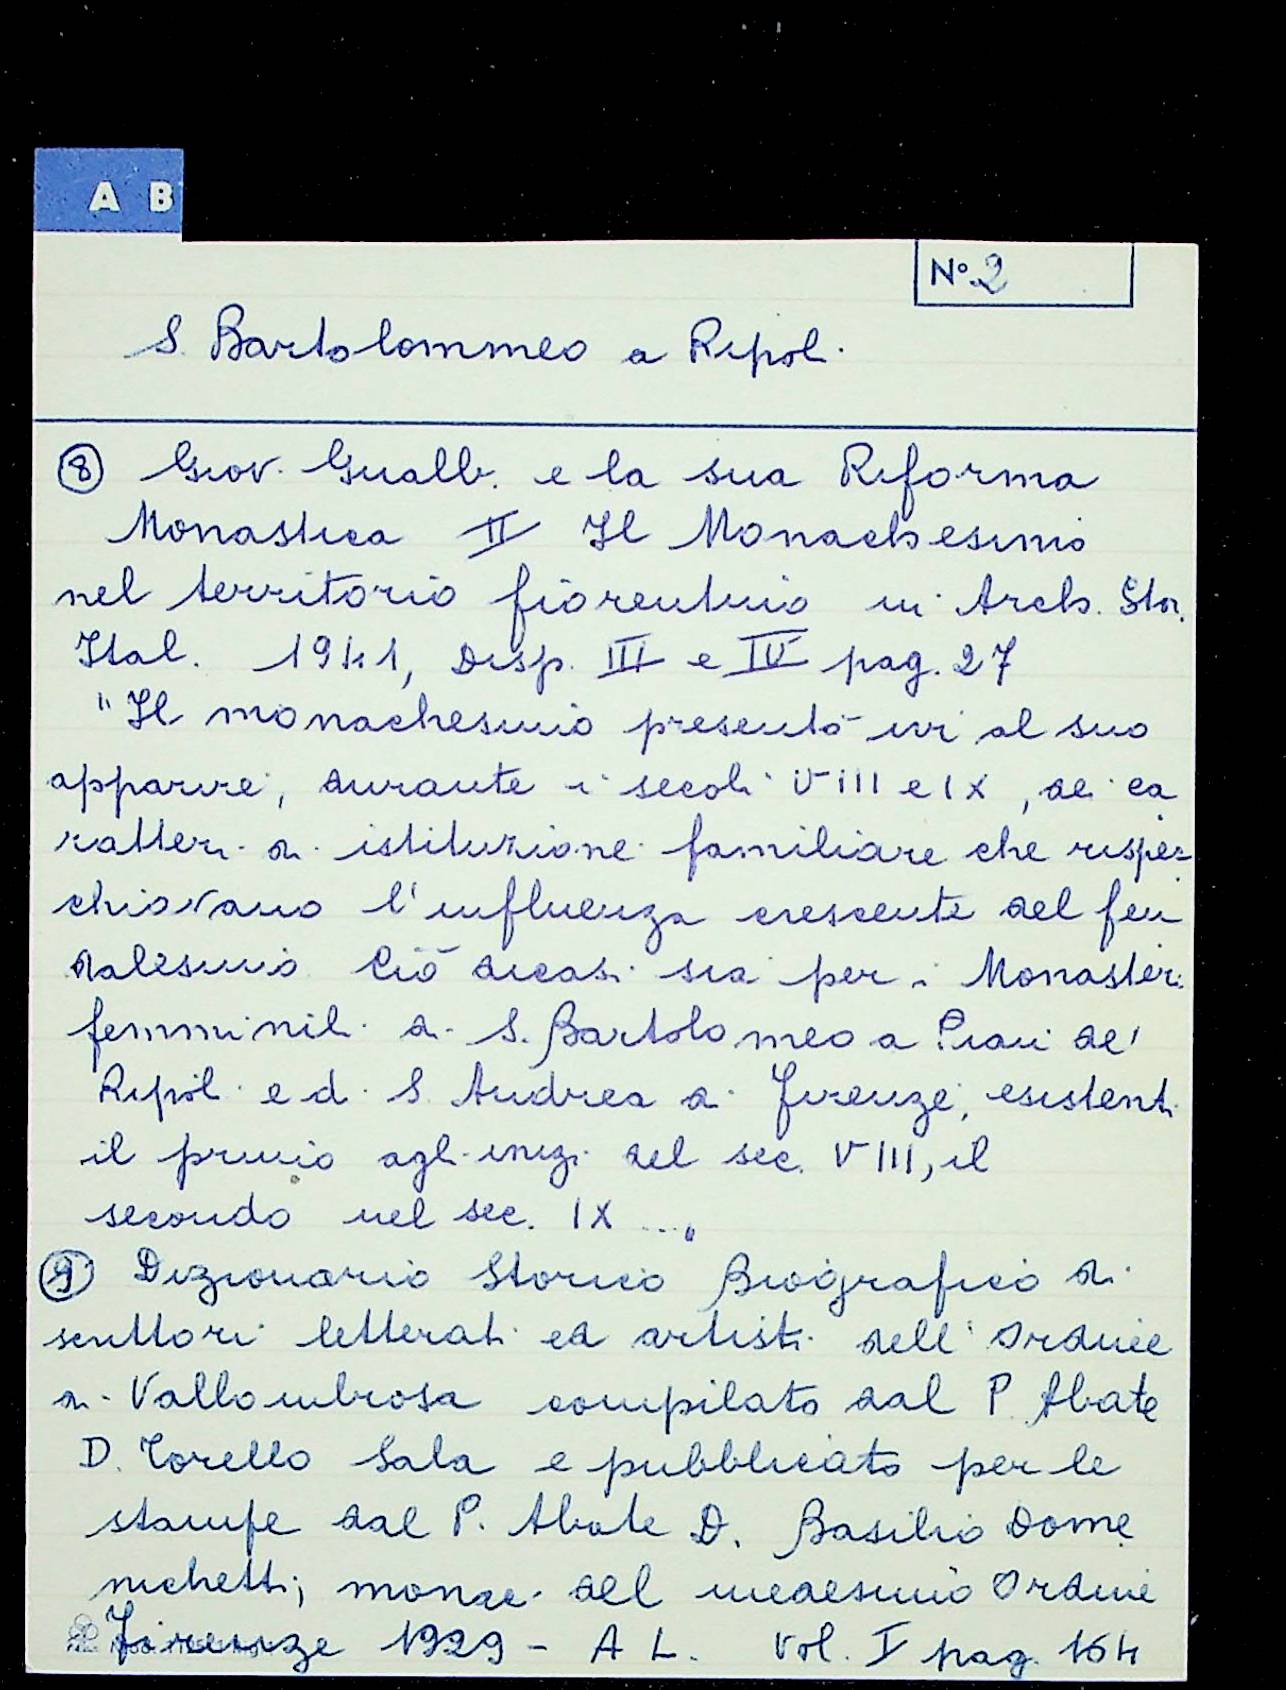 A B
N° 2
S. Bartolommeo a Ripoli
⑧ Giov. Gualb. e la sua Riforma
Monastica II Il Monachesimo
nel territorio fiorentino in Arch. Stor.
Ital. 1941, Disp. III e IV pag. 27
"Il monachesimo presentò ivi al suo
apparire, durante i secoli VIII e IX, dei ca
ratteri di istituzione familiare che rispec=
chiavano l'influenza crescente del feu
dalesimo Ciò dicasi sia per i Monasteri
femminili di S. Bartolomeo a Pian de'
Ripoli e di S Andrea a Firenze, esistenti
il primo agli inizi del sec. VIII, il
secondo nel sec. IX ..."
⑨ Dizionario Storico Biografico di
scrittori letterati ed artisti dell'Ordine
di Vallombrosa compilato dal P. Abate
D. Torello Sala e pubblicato per le
stampe dal P. Abate D. Basilio Dome
nichetti, monac. del medesimo Ordine
Firenze 1929 - A L. Vol. I pag. 164